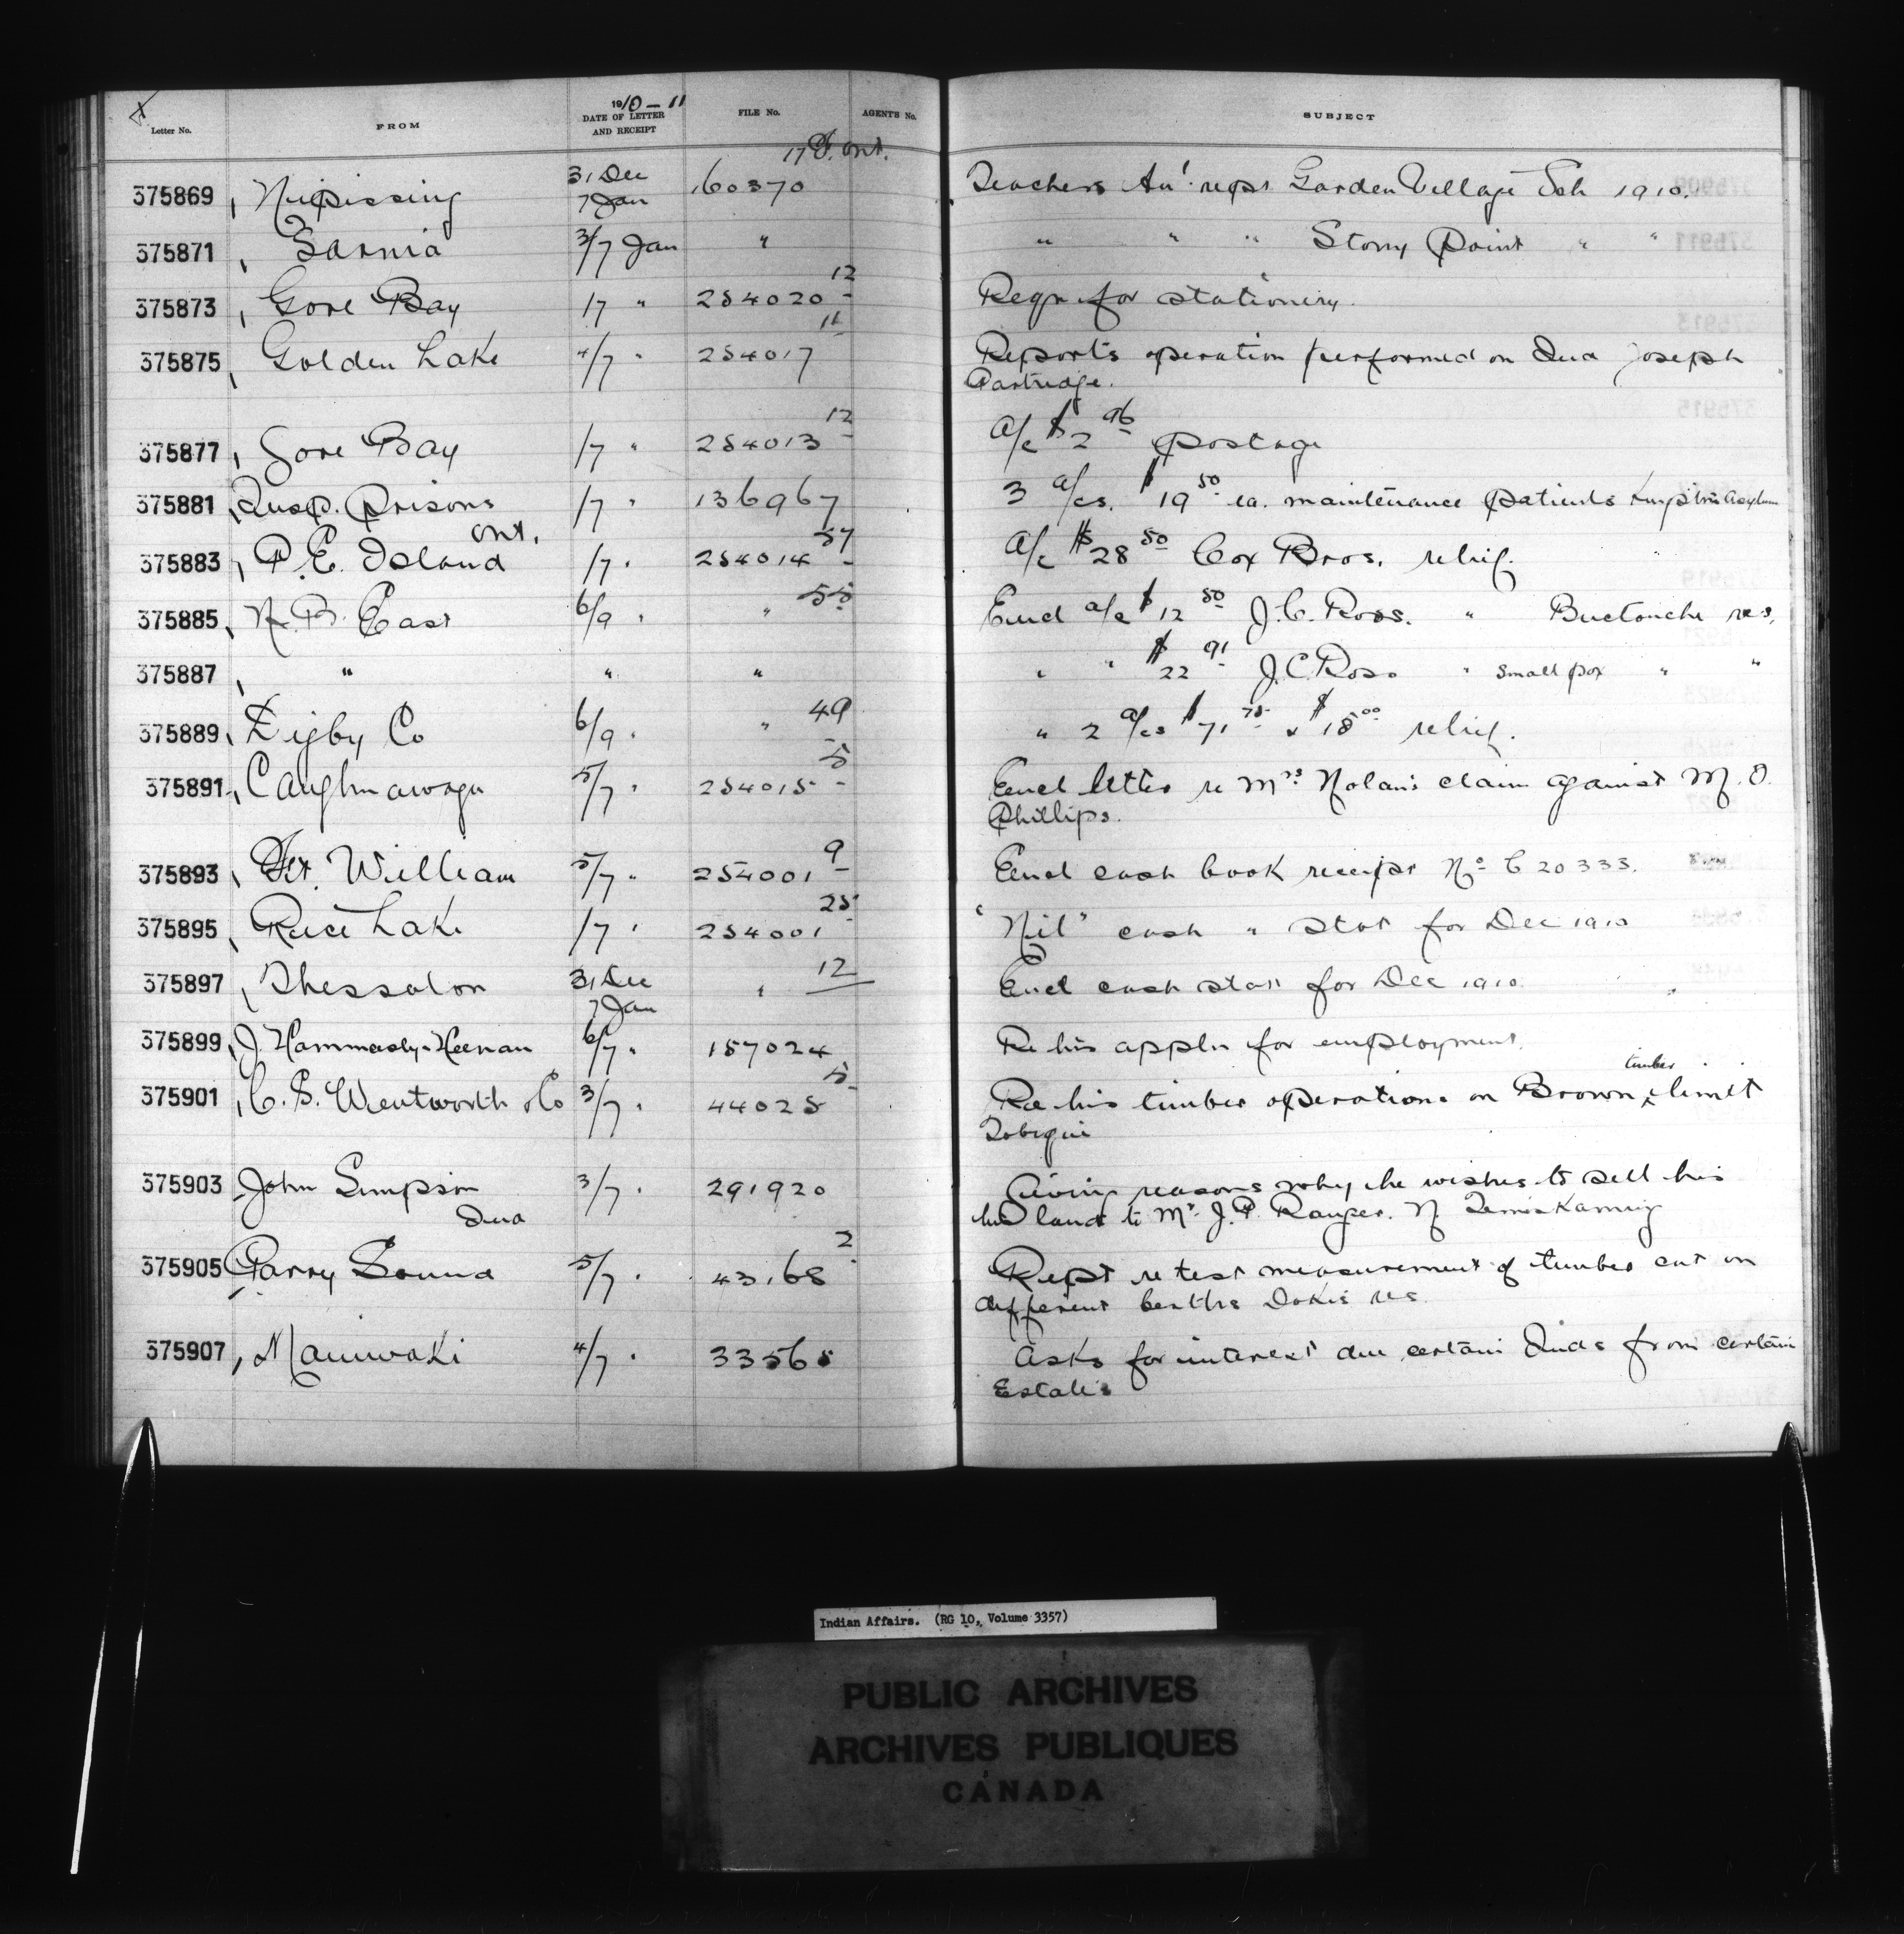 1910-11
Letter No. FROM DATE OF LETTER AND RECEIPT FILE No. AGENT'S No. SUBJECT
17 Ont.
375869 Nipissing 31 Dec 7 Jan 160370 Teachers An' rept Garden Village Sch 1910.
375871 Sarnia 3/7 Jan " " " " Stony Point " "
375873 Gore Bay 1/7 " 254020 12 Reqn for stationery.
375875 Golden Lake 4/7 " 254017 11 Reports operation performed on Ind Joseph
Partridge.
375877 Gore Bay 1/7 " 254013 12 A/c $2 96 postage
375881 Insp. Prisons Ont. 1/7 " 136967 3 a/cs. $19 50 ea. maintenance patients Asylum
375883 P.E. Island 1/7 " 254014 57 A/c $28 50 Cox Bros. relief.
375885 N.B. East 6/9 " " 55 Encl a/c $12 50 J.C. Ross. " Buctouche res.
375887 " " " " " $22 91 J.C. Ross " Small pox " "
375889 Digby Co 6/9 " " 49 " 2 a/cs $71 75 & $18 00 relief.
375891 Caughnawaga 5/7 " 254015 5 Encl letter re Mrs Nolan's claim against M. O.
Phillips.
375893 Ft. William 5/7 " 254001 9 Encl cash book receipt No C 20333.
375895 Rice Lake 1/7 " 254001 25 "Nil" cash " stat for Dec 1910
375897 Thessalon 31 Dec 7 Jan " 12 Encl cash stat for Dec 1910
375899 J. Hammersly-Heenan 6/7 " 157024 Re his appln for employment.
375901 C.S. Wentworth & Co 3/7 " 44025 5 Re his timber operations on Brown timber limit
Tobique
375903 John Simpson Ind 3/7 " 291920 Giving reasons why he wishes to sell his
land to Mr. J.P. Ranger. N. Temiskaming
375905 Parry Sound 5/7 " 43168 2 Rept re test measurement of timber cut on
different berths Dokis res
375907 Maniwaki 4/7 " 33565 Asks for interest due certain Inds from certain
Estates
Indian Affairs. (RG 10, Volume 3357)
PUBLIC ARCHIVES
ARCHIVES PUBLIQUES
CANADA